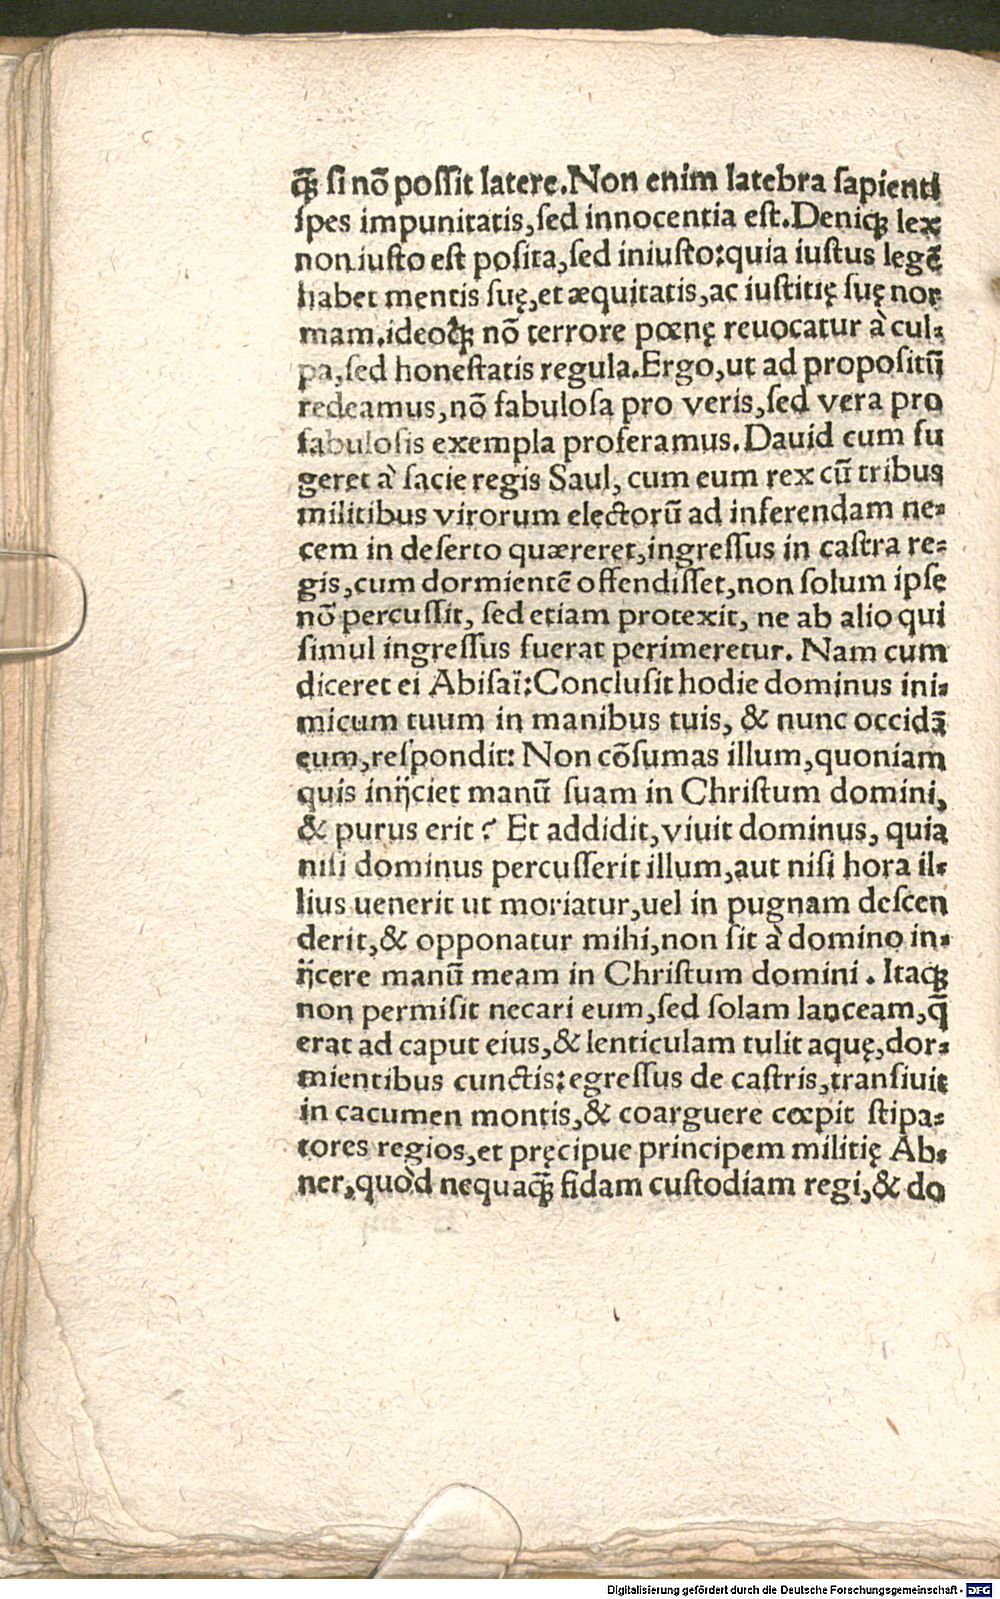 q̃ꝫ si nõ possit latere. Non enim latebra sapienti
spes impunitatis, sed innocentia est. Deniqꝫ lex
non iusto est posita, sed iniusto: quia iustus legẽ
habet mentis suę, et æquitatis, ac iustitię suę nor
mam. ideoq̃ꝫ nõ terrore pœnę reuocatur à cul-
pa, sed honestatis regula. Ergo, ut ad propositũ
redeamus, nõ fabulosa pro veris, sed vera pro
fabulosis exempla proferamus. Dauid cum fu
geret à facie regis Saul, cum eum rex cũ tribus
militibus virorum electorũ ad inferendam ne-
cem in deserto quæreret, ingressus in castra re-
gis, cum dormientẽ offendisset, non solum ipse
nõ percussit, sed etiam protexit, ne ab alio qui
simul ingressus fuerat perimeretur. Nam cum
diceret ei Abisaï: Conclusit hodie dominus ini-
micum tuum in manibus tuis, & nunc occidã
eum, respondit: Non cõsumas illum, quoniam
quis inijciet manũ suam in Christum domini,
& purus erit? Et addidit, viuit dominus, quia
nisi dominus percusserit illum, aut nisi hora il-
lius uenerit ut moriatur, uel in pugnam descen
derit, & opponatur mihi, non sit à domino in-
ijcere manũ meam in Christum domini. Itaqꝫ
non permisit necari eum, sed solam lanceam, q̃
erat ad caput eius, & lenticulam tulit aquę, dor-
mientibus cunctis: egressus de castris, transiuit
in cacumen montis, & coarguere cœpit stipa-
tores regios, et pręcipue principem militię Ab-
ner, quòd nequaq̃ꝫ fidam custodiam regi, & do
Digitalisierung gefördert durch die Deutsche Forschungsgemeinschaft - DFG